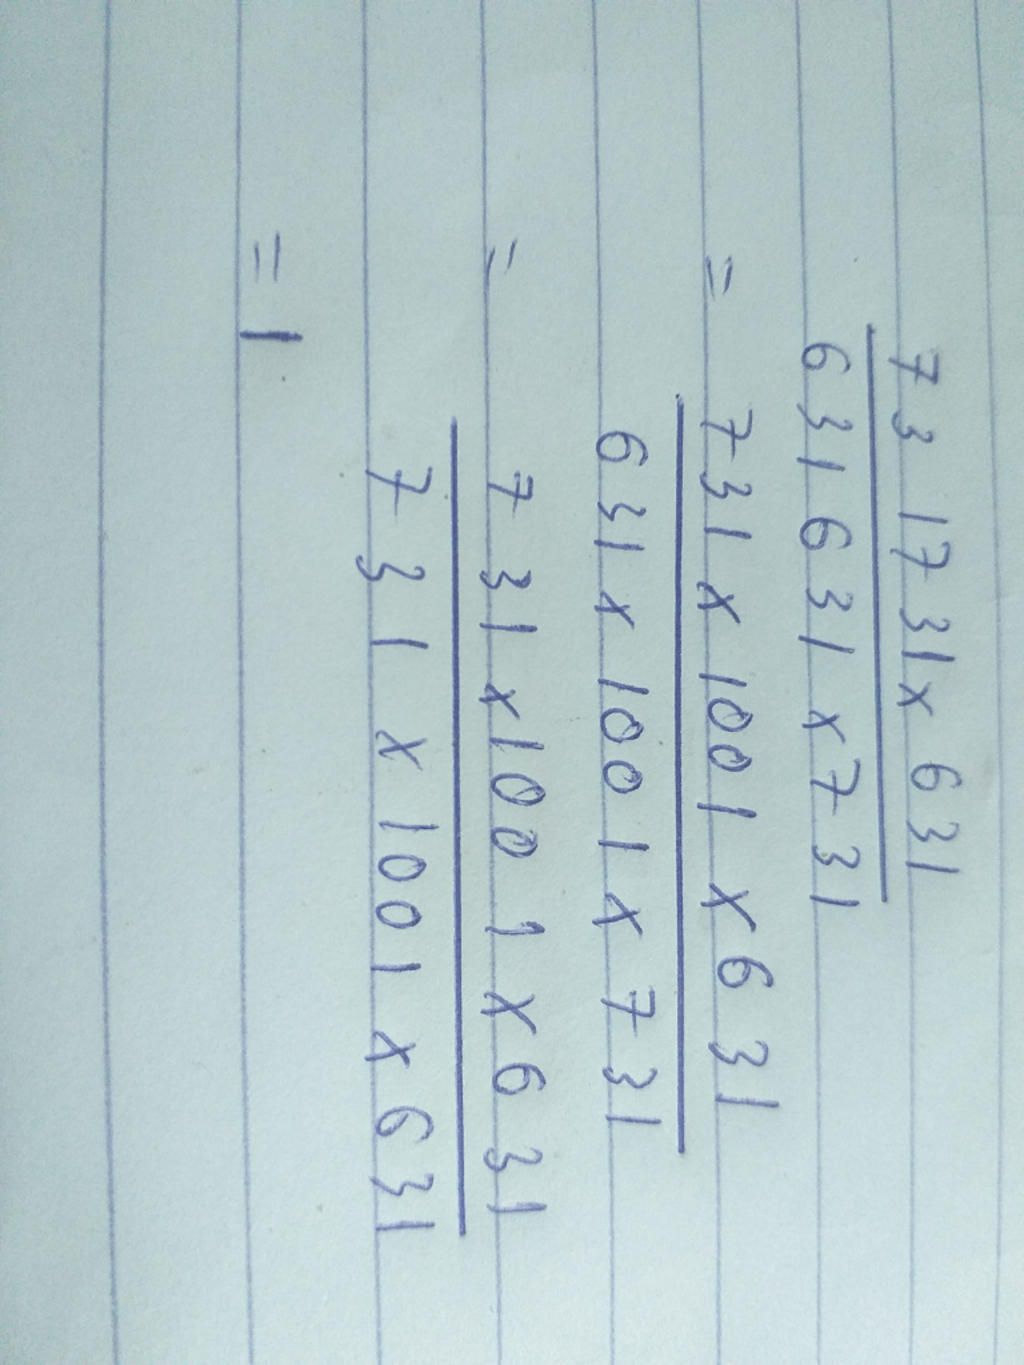 731731 x 631
631631 x 731
= 731 x 1001 x 631
631 x 1001 x 731
= 731 x 1001 x 631
731 x 1001 x 631
= 1